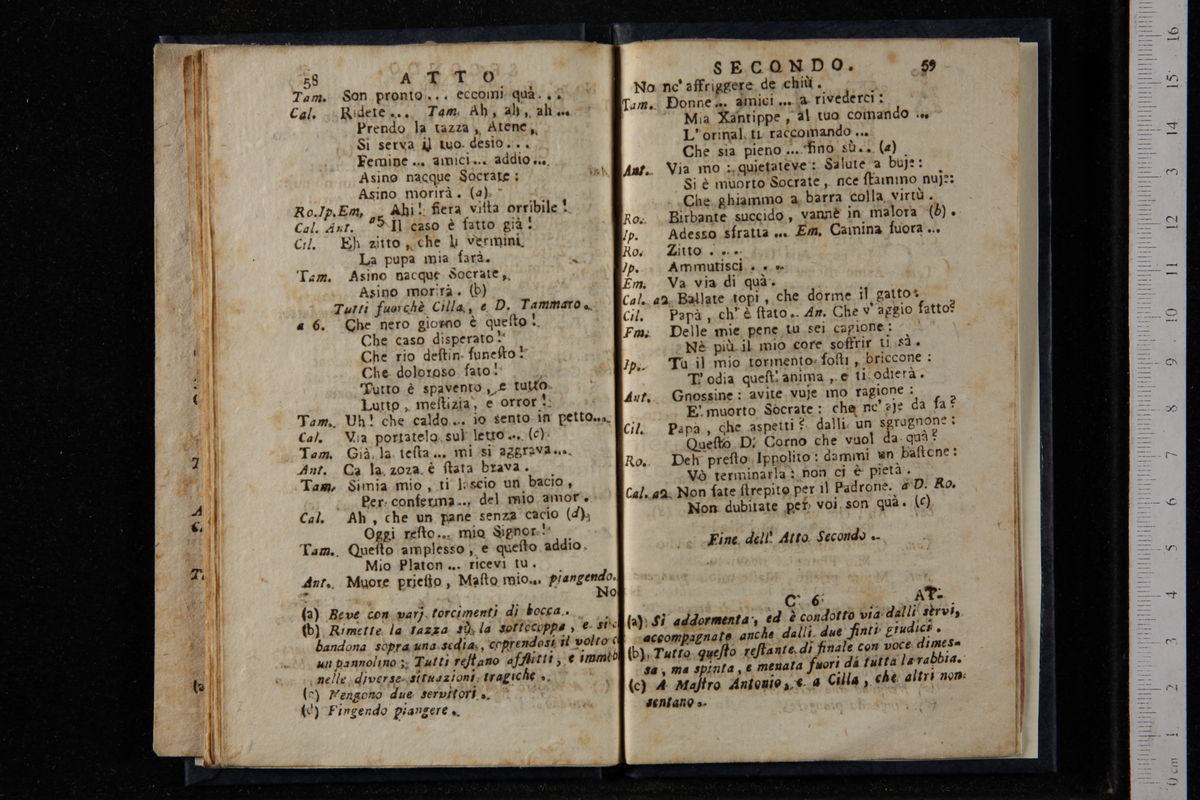 58 ATTO
Tam. Son pronto... eccomi quà...
Cal. Ridete... Tam. Ah, ah, ah...
Prendo la tazza, Atene,
Si serva il tuo desio...
Femine... amici... addio...
Asino nacque Socrate:
Asino morirà. (a)
Ro. Ip. Em. Ahi! fiera vista orribile!
Cal. Ant. a5 Il caso è fatto già!
Cil. Eh zitto, che li vermini
La pupa mia farà.
Tam. Asino nacque Socrate,
Asino morirà. (b)
Tutti fuorchè Cilla, e D. Tammaro.
a 6. Che nero giorno è questo!
Che caso disperato!
Che rio destin funesto!
Che doloroso fato!
Tutto è spavento, e tutto
Lutto, mestizia, e orror!
Tam. Uh! che caldo... io sento in petto...
Cal. Via portatelo sul letto... (c)
Tam. Già la testa... mi si aggrava...
Ant. Ca la zoza è stata brava.
Tam. Simia mio, ti lascio un bacio,
Per conferma... del mio amor.
Cal. Ah, che un pane senza cacio (d)
Oggi resto... mio Signor!
Tam. Questo amplesso, e questo addio
Mio Platon... ricevi tu.
Ant. Muore priesto, Masto mio... piangendo.
No
(a) Beve con varj torcimenti di bocca.
(b) Rimette la tazza sù la sottocoppa, e si
bandona sopra una sedia, coprendosi il volto
un pannolino; Tutti restano afflitti, e immob
nelle diverse situazioni tragiche.
(c) Vengono due servitori.
(d) Fingendo piangere.
SECONDO. 59
No nc' affriggere de chiù.
Tam. Donne... amici... a rivederci:
Mia Xantippe, al tuo comando...
L' orinal ti raccomando...
Che sia pieno... fino sù.. (a)
Ant. Via mo: quietateve: Salute a buje:
Si è muorto Socrate, nce stammo nuje:
Che ghiammo a barra colla virtù.
Ro. Birbante succido, vanne in malora (b).
Ip. Adesso sfratta... Em. Camina fuora...
Ro. Zitto...
Ip. Ammutisci...
Em. Va via di quà.
Cal. a2 Ballate topi, che dorme il gatto:
Cil. Papà, ch' è stato. An. Che v' aggio fatto?
Em. Delle mie pene tu sei cagione:
Nè più il mio core soffrir ti sà.
Ip. Tu il mio tormento fosti, briccone:
T' odia quest' anima, e ti odierà.
Ant. Gnossine: avite vuje mo ragione:
E' muorto Socrate: che nc' eje da fa?
Cil. Papà, che aspetti? dalli un sgrugnone:
Questo D. Corno che vuol da quà?
Ro. Deh presto Ippolito: dammi un bastone:
Vò terminarla: non ci è pietà.
Cal. a2 Non fate strepito per il Padrone. a D. Ro.
Non dubitate per voi son quà. (c)
Fine dell' Atto Secondo.
C 6 AT-
(a) Si addormenta, ed è condotto via dalli servi,
accompagnato anche dalli due finti giudici.
(b) Tutto questo restante di finale con voce dimes-
sa, ma spinta, e menata fuori da tutta la rabbia.
(c) A Mastro Antonio, e a Cilla, che altri non
sentano.
16
15
14
13
12
11
10
9
8
7
6
5
4
3
2
1
0 cm